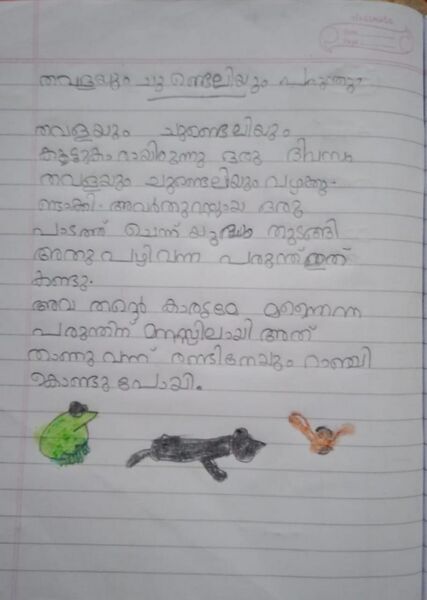 തവളയും ചുണ്ടെലിയും പരുന്തും
തവളയും ചുണ്ടെലിയും
കൂട്ടുകാരായിരുന്നു ഒരു ദിവസം
തവളയും ചുണ്ടെലിയും വഴക്കു
ണ്ടാക്കി. അവർ തുറസ്സായ ഒരു
പാടത്ത് ചെന്ന് യുദ്ധം തുടങ്ങി
അതു വഴി വന്ന പരുന്ത് ഇത്
കണ്ടു.
അവ തന്റെ
പരുന്തിന് മനസ്സിലായി അത്
താന്നു വന്ന് രണ്ടിനേയും റാഞ്ചി
കൊണ്ടു പോയി.